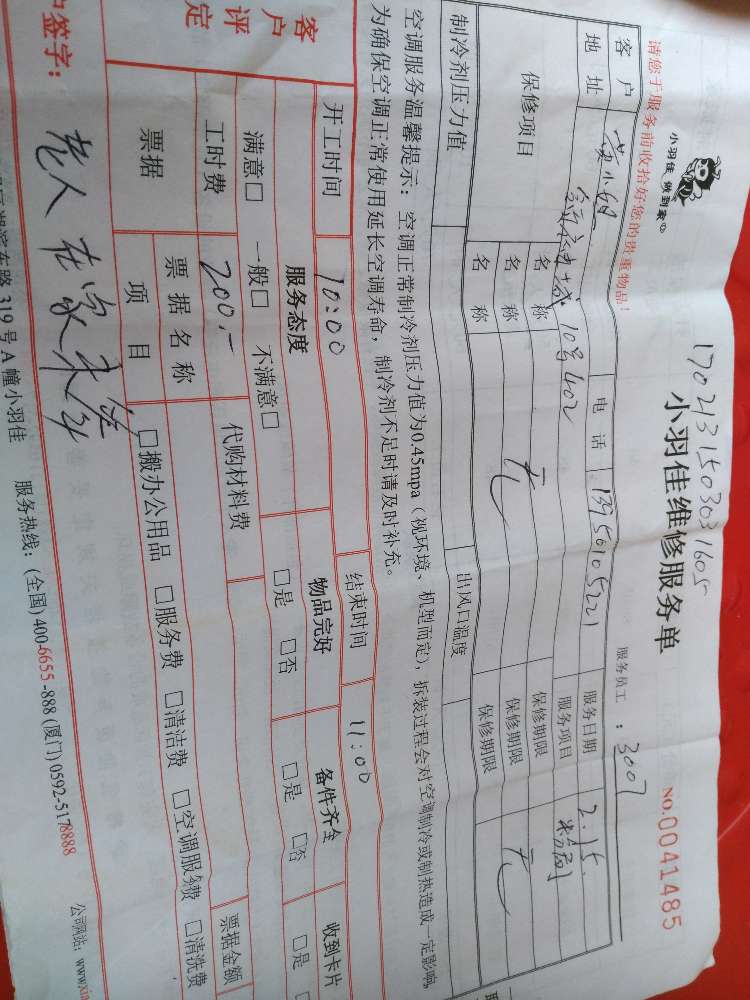 小羽佳 做到家
1702131503031605
小羽佳维修服务单
服务员工 : 3007
NO.0041485
请您于服务前收拾好您的贵重物品！
客户 黄小姐 电话 13956105221 服务日期 2.15.
地址 10号402 服务项目
保修项目 名称 无 保修期限 无
名称 保修期限
名称 保修期限
制冷剂压力值 出风口温度
空调服务温馨提示：空调正常制冷剂压力值为0.45mpa（视环境、机型而定），拆装过程会对空调制冷或制热造成一定影响，
为确保空调正常使用延长空调寿命，制冷剂不足时请及时补充。
开工时间 10:00 结束时间 11:00
客户评定
服务态度 物品完好 备件齐全 收到卡片
满意□ 一般□ 不满意□ □是 □否 □是 □否 □是
工时费 200.- 代购材料费
票据 票据名称 票据金额
项目 □搬办公用品 □服务费 □清洁费 □空调服务费 □清洗费
签字： 老人在家未签
路319号A幢小羽佳 服务热线：(全国) 400-6655-888 (厦门) 0592-5178888
公司网站：www.xin